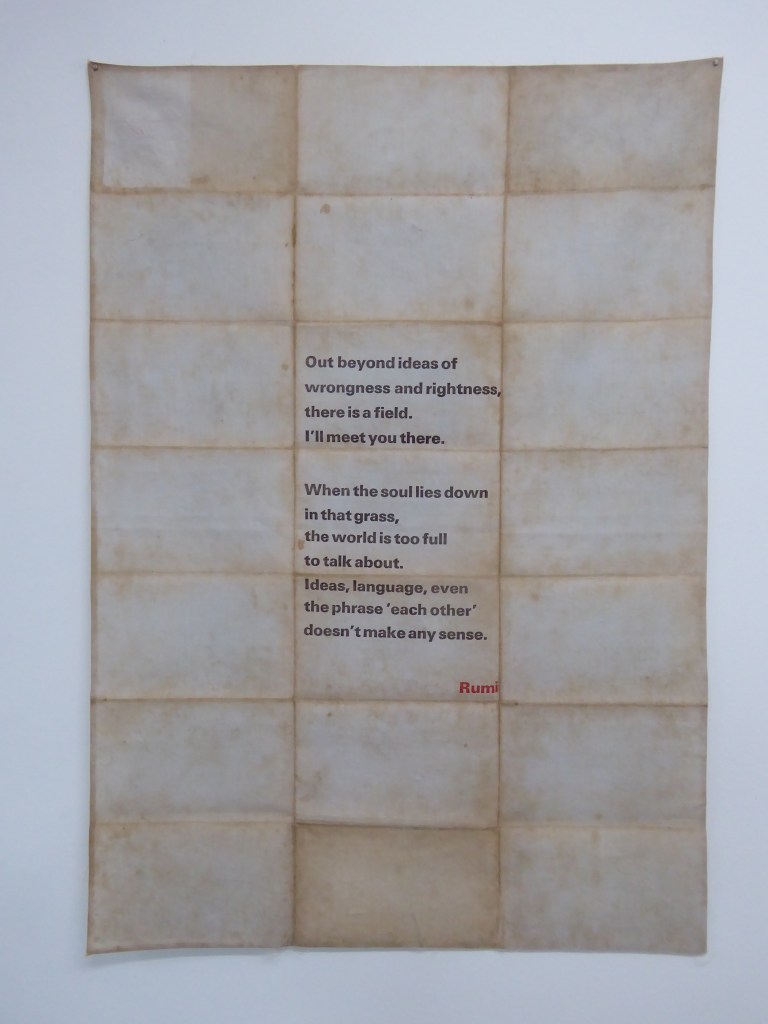 Out beyond ideas of
wrongness and rightness,
there is a field.
I'll meet you there.
When the soul lies down
in that grass,
the world is too full
to talk about.
Ideas, language, even
the phrase 'each other'
doesn't make any sense.
Rumi